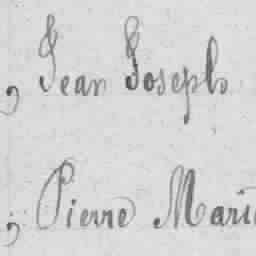 , Jean Joseph
; Pierre Marie